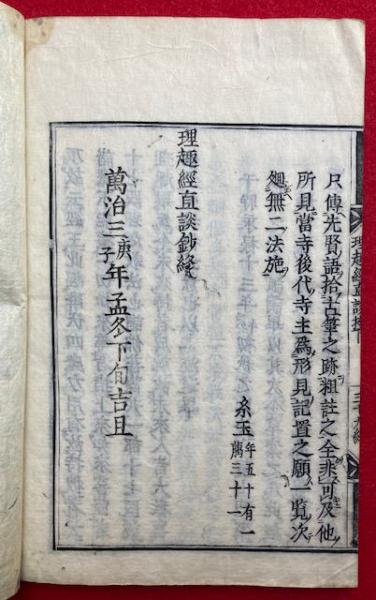 只傳先賢語拾古筆之跡粗註之全非可及他
所見當寺後代寺主為形見記置之願一覧次
廻無二法施
糸玉 年五十有一
﨟三十一
理趣經直談鈔終
萬治三庚子年孟冬下旬吉旦
理趣經直談抄